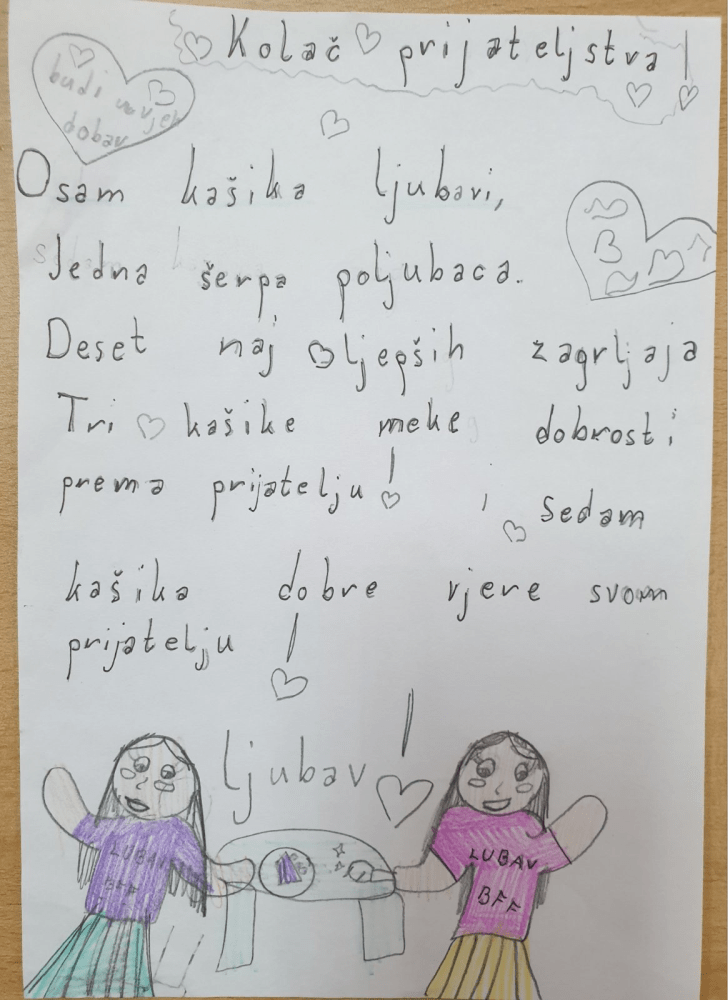 Kolač prijateljstva!
budi uvjek
dobav
Osam kašika ljubavi,
Jedna šerpa poljubaca.
Deset najljepših zagrljaja
Tri kašike meke dobrosti
prema prijatelju! i sedam
kašika dobre vjere svom
prijatelju!
ljubav!
LUBAV
BFF
LUBAV
BFF